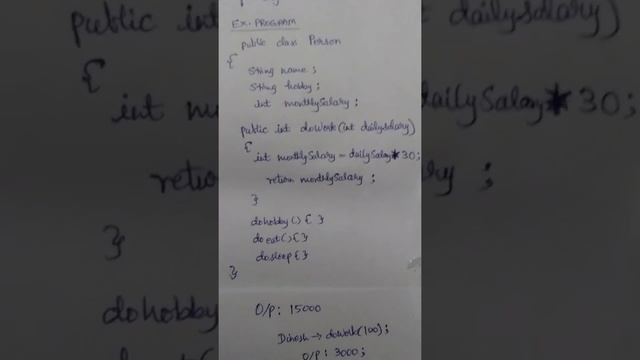 EX. PROGRAM
public class Person
{
String name ;
String hobby ;
int monthlySalary ;
public int doWork(int dailysalary)
{
int monthlySalary = dailySalary * 30 ;
return monthlySalary ;
}
dohobby() { }
do eat() { }
do sleep { }
}
O/P : 15000
Dinesh → doWork(100) ;
O/P : 3000 ;